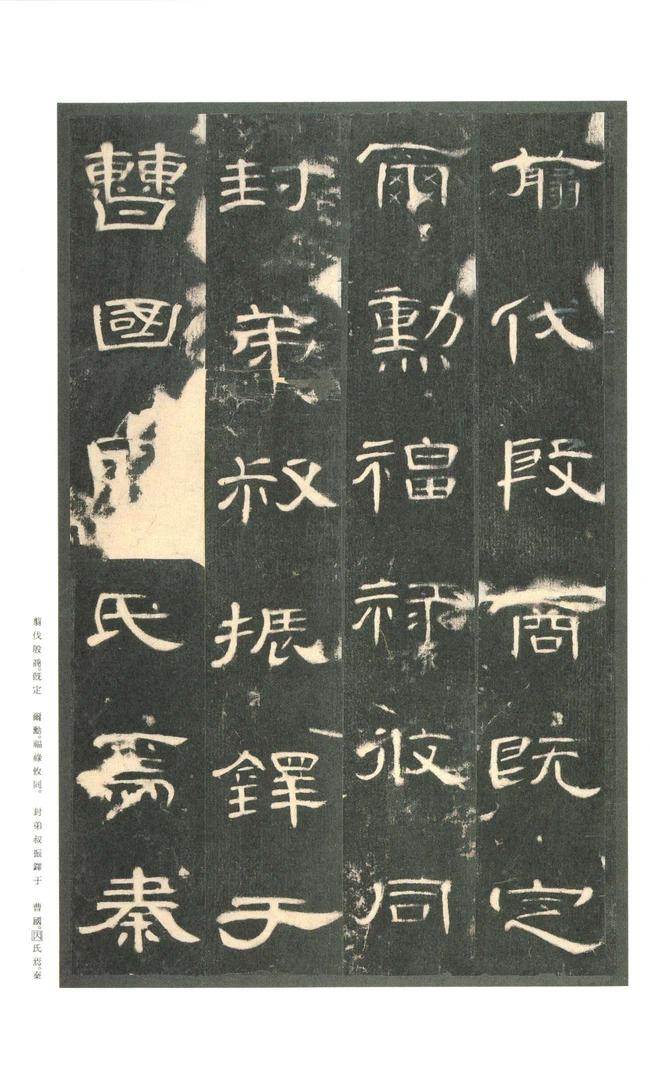 翦伐殷商旣定
爾勳福祿攸同
封弟叔振鐸于
曹國因氏焉秦
翦伐殷商。旣定　爾勳。福祿攸同。　封弟叔振鐸于　曹國。因氏焉。秦